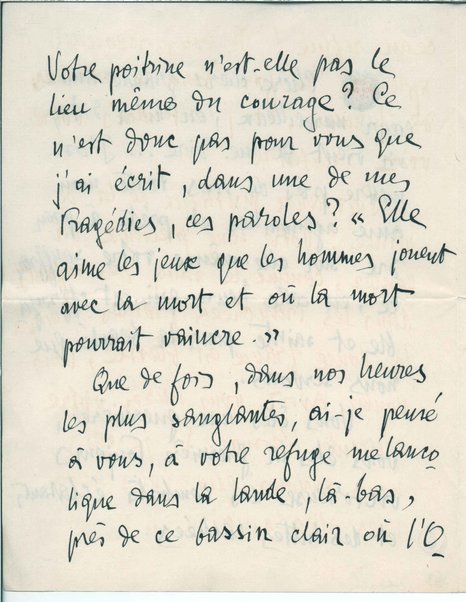 Votre poitrine n'est-elle pas le
lieu mêmes du courage? Ce
n'est donc pas pour vous que
j'ai écrit, dans une de mes
Tragédies, ces paroles? « Elle
aime les jeux que les hommes jouent
avec la mort et où la mort
pourrait vaincre »
Que de fois, dans nos heures
les plus sanglantes, ai-je pensé
à vous, à votre refuge mélanco
lique dans la lande, là-bas,
près de ce bassin clair où l'O